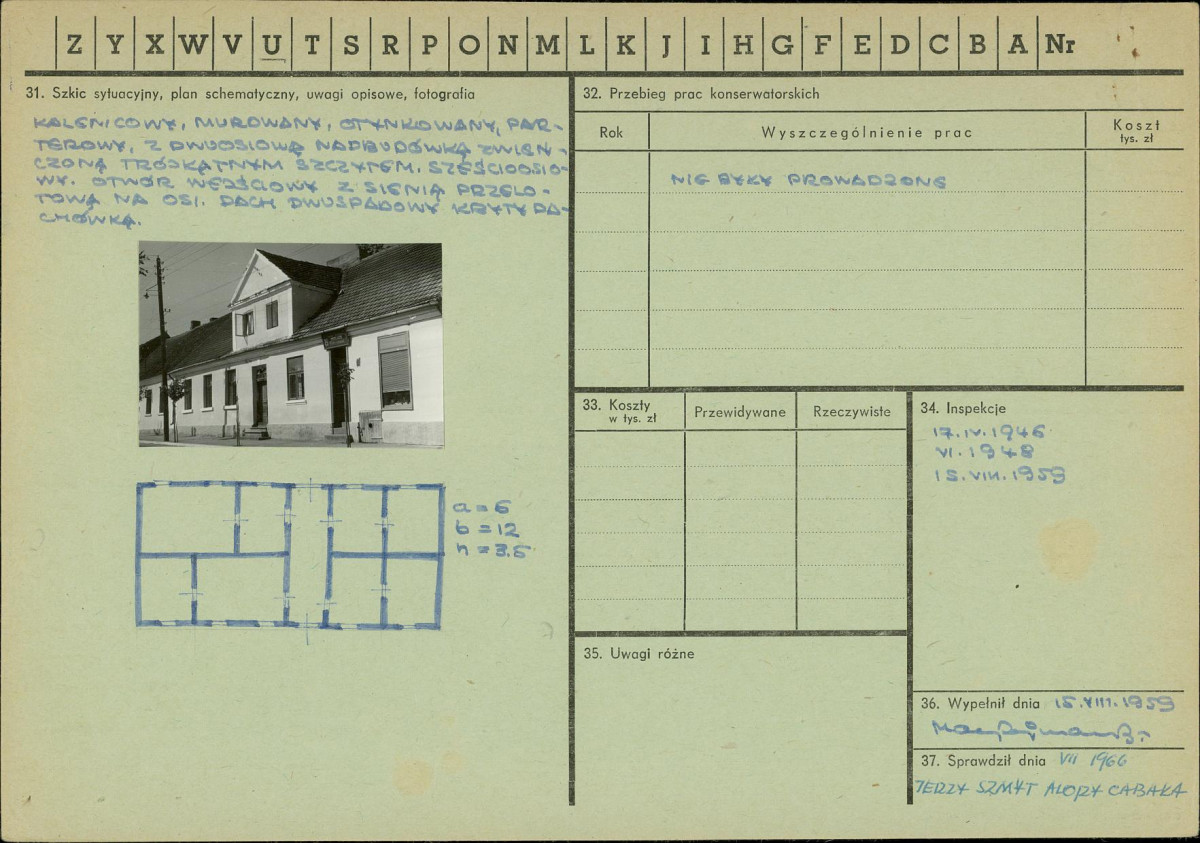 Z Y X W V U T S R P O N M L K J I H G F E D C B A Nr
31. Szkic sytuacyjny, plan schematyczny, uwagi opisowe, fotografia
KALENICOWY, MUROWANY, OTYNKOWANY, PAR-
TEROWY, Z DWUOSIOWĄ NADBUDÓWKĄ ZWIEŃ-
CZONĄ TRÓJKĄTNYM SZCZYTEM. SZEŚCIOOSIO-
WY. OTWÓR WEJŚCIOWY Z SIENIĄ PRZELO-
TOWĄ NA OSI. DACH DWUSPADOWY KRYTY DA-
CHÓWKĄ.
a = 6
b = 12
h = 3.5
32. Przebieg prac konserwatorskich
Rok Wyszczególnienie prac Koszt
tys. zł
NIE BYŁY PROWADZONE
33. Koszty
w tys. zł
Przewidywane Rzeczywiste
34. Inspekcje
17.IV.1946
VI.1948
15.VIII.1959
35. Uwagi różne
36. Wypełnił dnia 15.VIII.1959
37. Sprawdził dnia VII 1966
JERZY SZMYT CABAKA